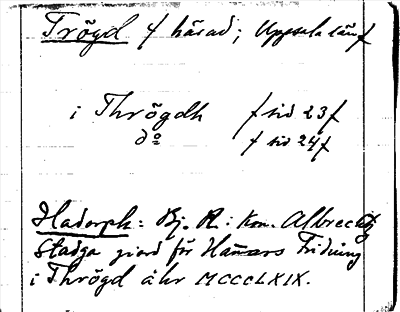 Trögd / härad; Uppsala län /
i Thrögdh / sid 23 /
do / sid 24 /
Hadorph: Bj. R.: Kon. Albrechtz
Stadga giord för Hafwers Fridning
i Thrögd åhr MCCCLXIX.